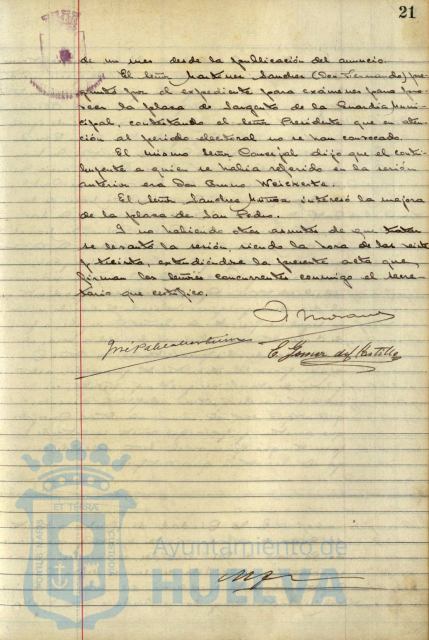 21
de un mes desde la publicación del anuncio.
El Señor Martinez Sanchez (Don Fernando) pre-
guntó por el expediente para exámenes para pro-
veer la plaza de Sargento de la Guardia Muni-
cipal, contestando el Señor Presidente que en aten-
ción al periodo electoral no se han convocado.
El mismo Señor Concejal dijo que el contri-
buyente a quien se habia referido en la sesión
anterior era Don Bruno Weickerte.
El Señor Sanchez Muñoz interesó la mejora
de la plaza de San Pedro.
Y no habiendo otros asuntos de que tratar
se levantó la sesión, siendo la hora de las veinte
y treinta, extendiéndose la presente acta que,
firman los señores concurrentes conmigo el secre-
tario que certifico.
José
E. Gomez del Castillo
ET TERRÆ
PORTUS MARIS
CUSTODIA
Ayuntamiento de
HUELVA